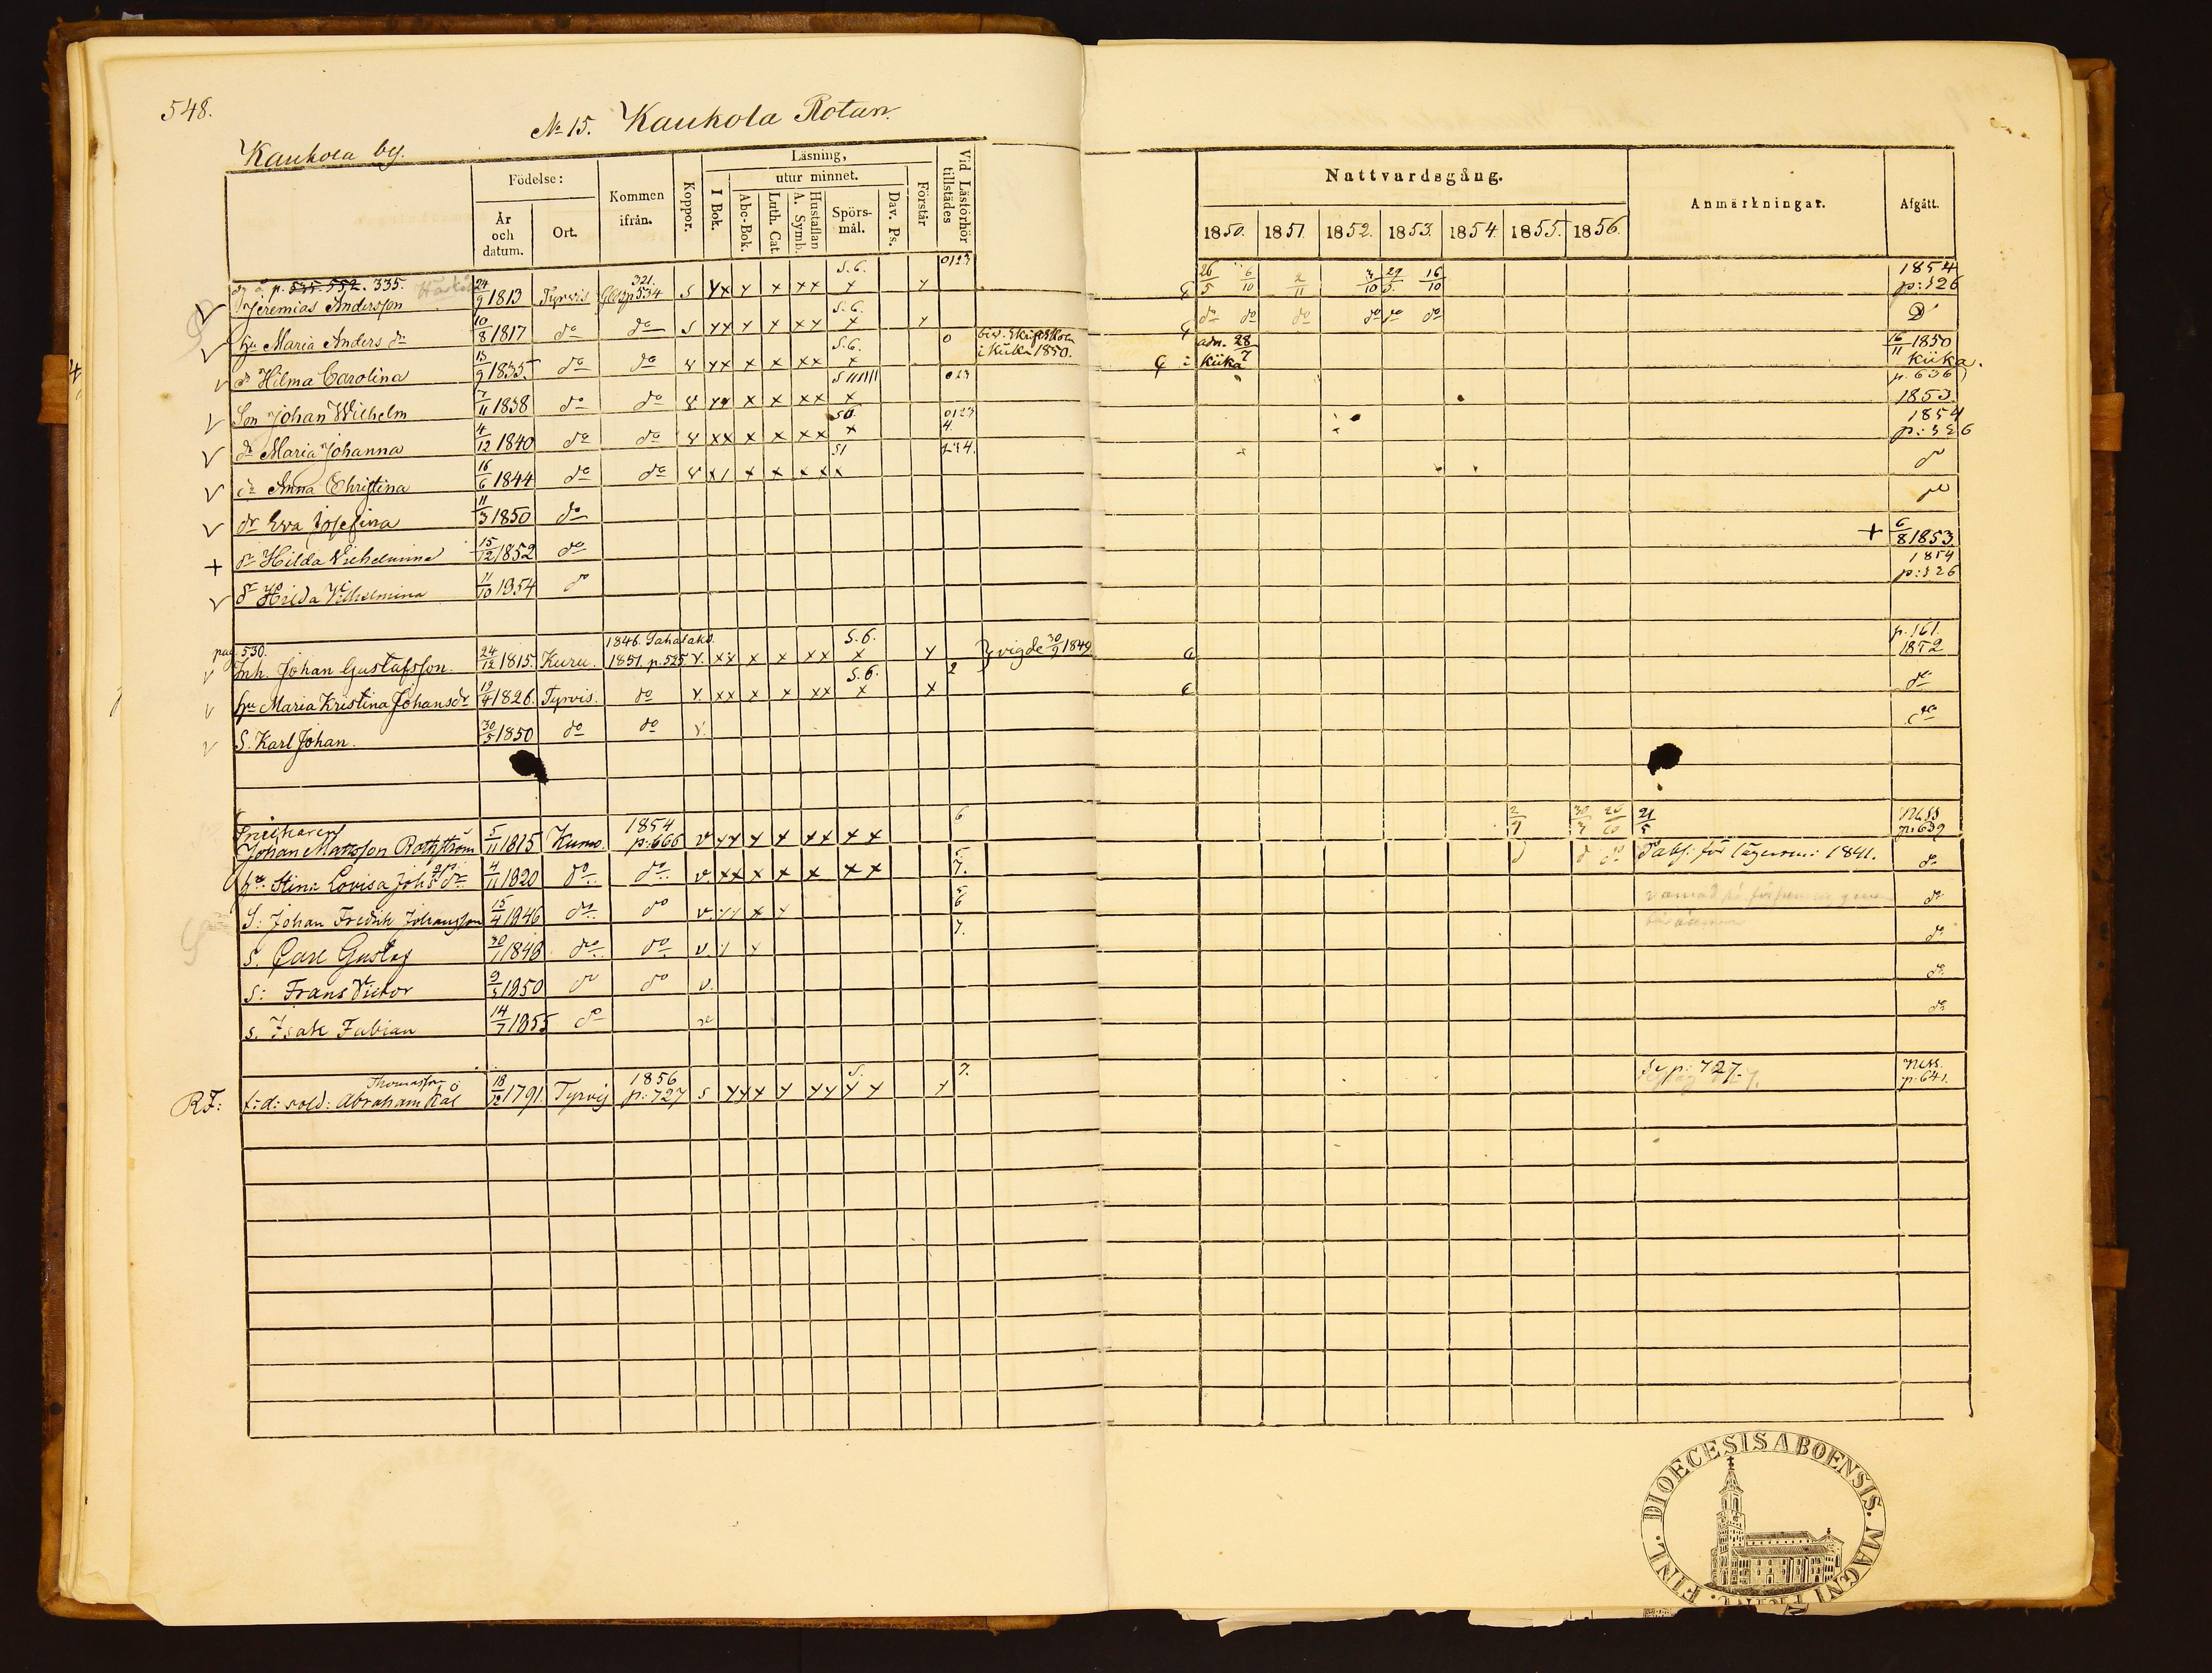 548.
No 15. Kaukola Rotan.
Kaukola by.
Födelse:
År och datum.
Ort.
Kommen ifrån.
Koppor.
Läsning,
I Bok.
utur minnet.
Abc-Bok.
Luth. Cat.
Hustaflan A. Symb.
Spörs-mål.
Dav. Ps.
Förstår
Vid Läsförhör tillstädes
Nattvardsgång.
1850. 1851. 1852. 1853. 1854. 1855. 1856.
Anmärkningar.
Afgått.
p. 535. 552. 335. 321. S. 6. 0123 26/5 6/10 2/11 3/10 29/5 16/10 1854
Jeremias Andersson 24/9 1813 Tyrvis p 534 S p: 326
hu Maria Anders dr 10/8 1817 do do S S. 6. do do do do do do
dr Hilma Carolina 13/9 1835 do do v S. 6. 0 i Kiika 1850. adm. 28/7 i Kiika 16/11 1850 Kiika.
p. 636
Son Johan Wilhelm 7/11 1838 do do v 023 1853.
dr Maria Johanna 4/12 1840 do do v 0123 4. 1854 p: 326
dr Anna Christina 16/6 1844 do do v 234. do
dr Eva Josefina 11/3 1850 do
+ dr Hilda Vilhelmina 15/12 1852 do + 6/8 1853
dr Hilda Vilhelmina 11/10 1854 do 1854 p: 326
pag. 530. 1846. Sahalaks. S. 6. p. 161.
Inh. Johan Gustafsson. 24/12 1815. Kuru. 1851. p. 525 v. vigde 30/9 1849 1852
hu Maria Kristina Johansdr 19/4 1826. Tyrvis. do v S. 6. 2 do
S. Karl Johan. 30/5 1850 do do v. do
1854 6 2/9 30/3 26/10 21/5
Johan Mattsson 5/11 1815 Kumo p: 666 v p: 639
hu Stina Lovisa Johs dr 4/11 1820 do do v. 5 7. 1841. do
S: Johan Fredrik Johansson 15/4 1846 do do v 5 6 do
S. Carl Gustaf 30/1 1848 do do v. 7. do
S: Frans Victor 9/3 1850 do do v. do
S. Isak Fabian 14/7 1855 do do
Thomasson 1856 S. 7. p: 727.
RF: f: d: sold: Abraham Kål 18/12 1791. Tyrvis p: 727 S p. 641.
FINL. DIOECESIS ABOENSIS. MAGNI